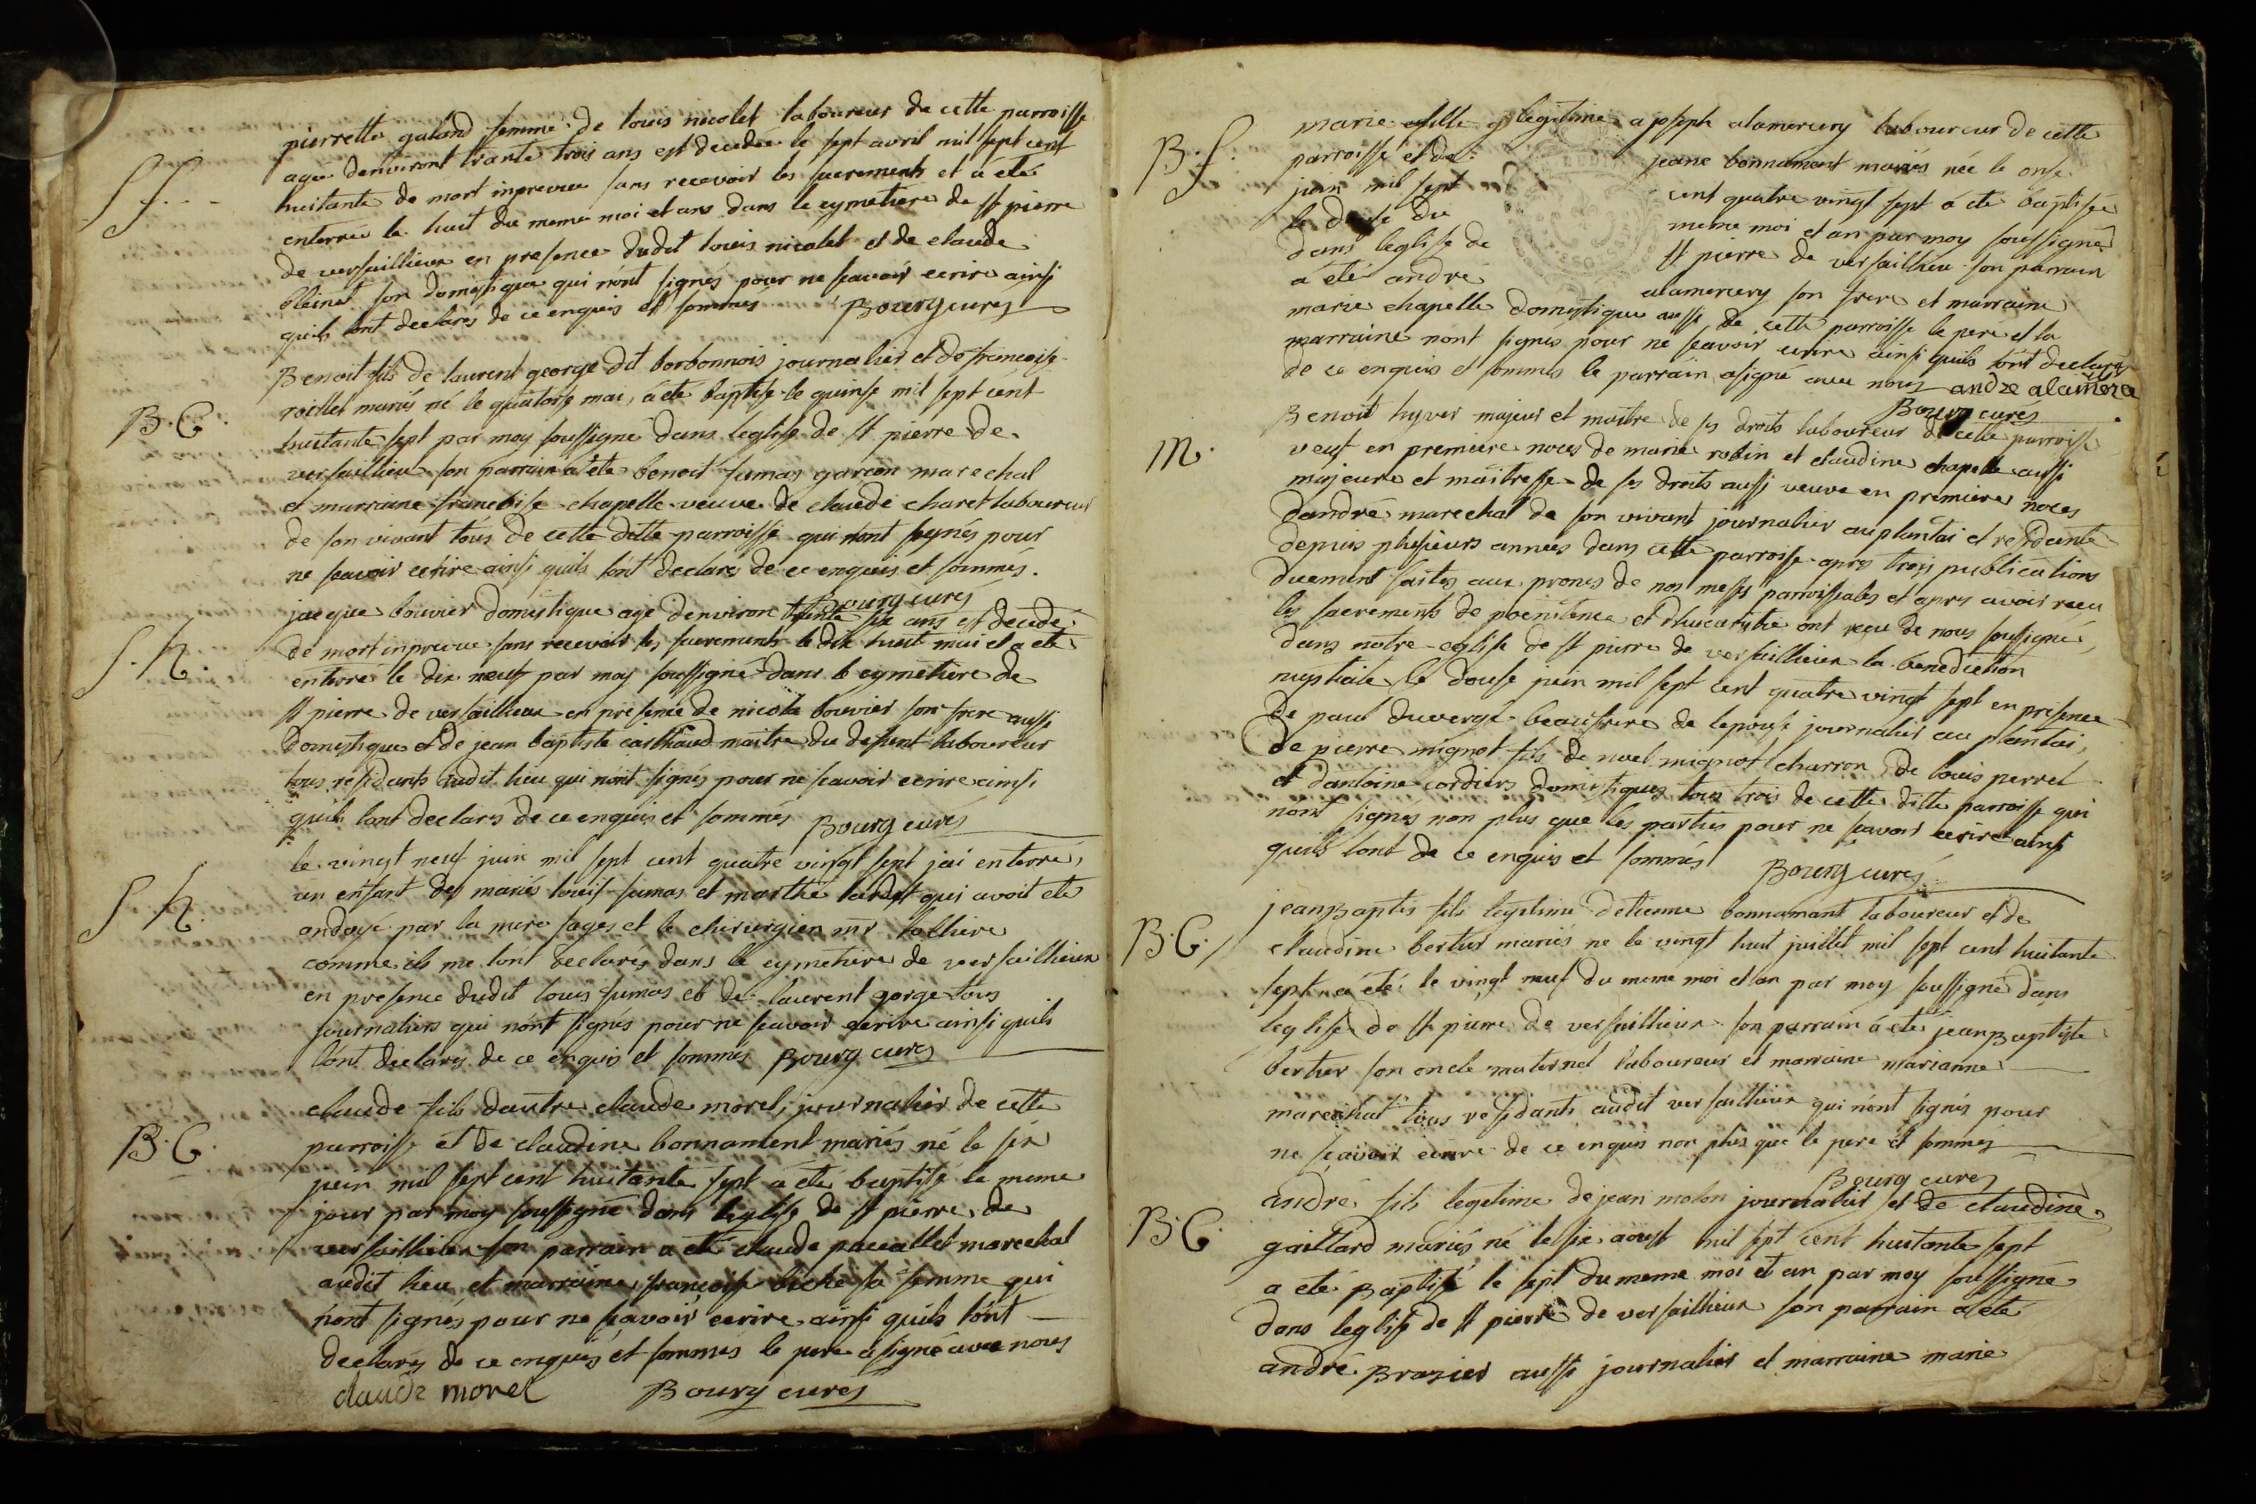 pierrette galand femme de louis nicolet laboureur de cette parroisse
S f. agée denviront trante trois ans est decedée le sept avril mil sept cent
huitante de mort inpreveu sans recevoir les sacrements et a été
enterrée le huit du meme moi et ans dans le cymetiere de st pierre
de versaillieux en presence dudit louis nicolet et de claude
blanet son domestique qui nont signés pour ne scavoir ecrire ainsi
quils lont declarés de ce enquis et sommés Bourg curés
Benoit fils de laurent george dit borbonnois journalier et de francoise
B. G. roillet mariés né le quatorse mai, a été baptisé le quinse mil sept cent
huitante sept par moy soussigné dans leglise de st pierre de
versaillieu son parrain a été benoit fumas garcon marechal
et marraine francoise chapelle veuve de claude charet laboureur
de son vivant tous de cette ditte parroisse qui nont signés pour
ne scavoir ecrire ainsi quils lont declarés de ce enquis et sommés.
Bourg curés
jacque bouvier domestique agé denviron trente six ans est decedé
S. h. de mort inpreveue sans recevoir les sacrements le dix huit mai et a été
enterré le dix neuf par moy soussigné dans le cymetiere de
st pierre de versaillieux en presence de nicola bouvier son frere aussi
domestique et de jean baptiste carthaud maitre du defunt laboureur
tous residants audit lieu qui nont signés pour ne scavoir ecrire ainsi
quils lont declarés de ce enquis et sommés Bourg curés
le vingt neuf juin mil sept cent quatre vingt sept jai enterré
S. h. un enfant des mariés louis fumas et marthe lardet qui avoit eté
ondoyé par la mere sages et le chirurgien mr
comme ils me lont declarés dans le cymetiere de versaillieux
en presence dudit louis fumas et de laurent gorge tous
journaliers qui nont signés pour ne scavoir ecrire ainsi quils
lont declarés de ce enquis et sommés Bourg curés
claude fils dautre claude morel, journalier de cette
B. G. parroisse et de claudine bonnament mariés né le six
juin mil sept cent huitante sept a été baptisé le meme
jour par moy soussigné dans leglise de st pierre de
versaillieux son parrain a été claude paccallet marechal
audit lieu et marraine francoise biche sa femme qui
nont signés pour ne scavoir ecrire ainsi quils lont
declarés de ce enquis et sommés le pere a signé avec nous
claude morel Bourg curés
marie fille legitime a joseph alamercery laboureur de cette
B. f. parroisse et de jeane bonnamant mariés née le onse
juin mil sept cent quatre vingt sept a été baptisée
le douse du meme moi et an par moy soussigné
dans leglise de st pierre de versaillieu son parrain
a été andré alamercery son frere et marraine
marie chapelle domestique aussi de cette parroisse le pere et la
marraine nont signés pour ne scavoir ecrire ainsi quils lont declarés
de ce enquis et sommés le parrain a signé avec nous andre alamerce
Bourg curés
Benoit hyver majeur et maitre de ses droits laboureur de cette parroisse
M. veuf en premiere noces de marie robin et claudine chapelle aussi
majeure et maitresse de ses droits aussi veuve en premiere noces
dandré marechal de son vivant journalier au plantai et residante
depuis plusieurs années dans cette parroisse apres trois publications
duement faites aux prones de nos messes parroissiales et apres avoir reçu
les sacrements de poenitence et dhucaristie ont reçu de nous soussigné,
dans notre eglise de st pierre de versaillieux la benediction
nuptiale le douse juin mil sept cent quatre vingt sept en presence
de paul duvergé beaufrere de lepouse journalier au plantai,
de pierre mignot fils de noel mignot charron, de louis perret
et dantoine cordiers domestiques tous trois de cette ditte parroisse qui
nont signés non plus que les parties pour ne scavoir ecrire ainsi
quils lont de ce enquis et sommés Bourg curés
jean Baptis fils legitime detienne bonnamant laboureur et de
B. G. claudine bertier mariés né le vingt huit juillet mil sept cent huitante
sept a été le vingt neuf du meme moi et an par moy soussigné dans
leglise de st pierre de versaillieux son parrain a été jean Baptiste
bertier son oncle maternel laboureur et marraine marianne
marechal tous residants audit versaillieux qui nont signés pour
ne scavoir ecrire de ce enquis non plus que le pere et sommés
Bourg curés
andré fils legitime de jean molon journalier et de claudine
B. G. gaillard mariés né le six aoust mil sept cent huitante sept
a été Baptisé le sept du meme moi et an par moy soussigné
dans leglise de st pierre de versaillieux son parrain a été
andré Brazier aussi journalier et marraine marie